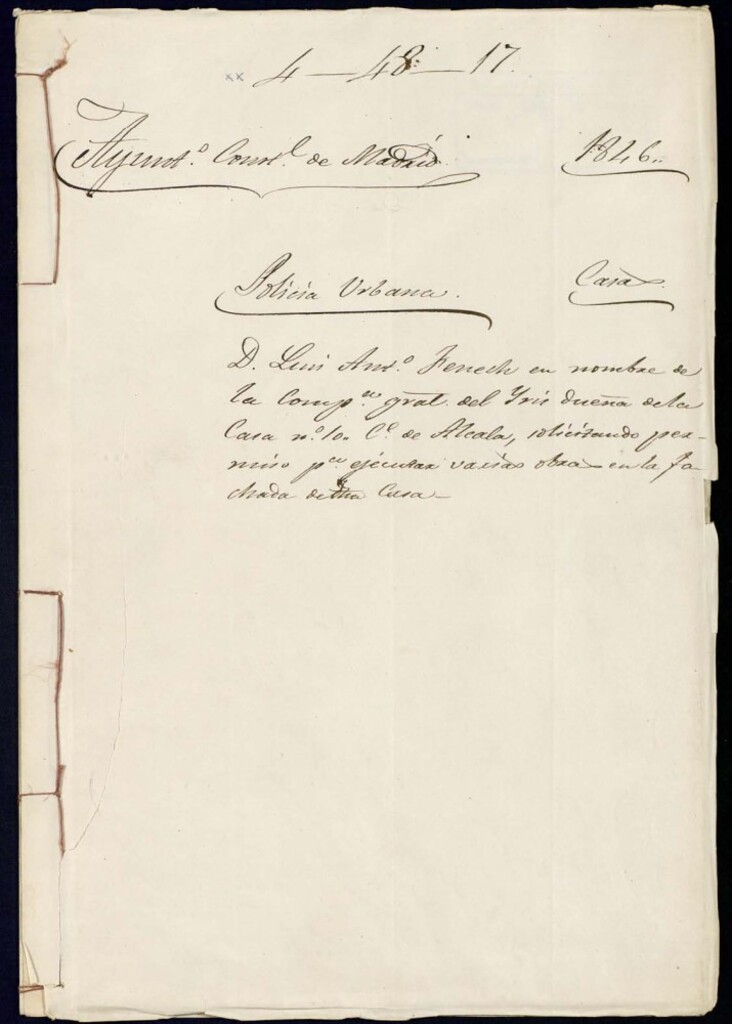 xx 4-48-17.
Ayunt.º Const.l de Madrid 1846.,
Policia Urbana. Casas.
D. Luis Ant.º Fenech en nombre de
la Comp.ª gral. del Yris dueña de la
Casa n.º 10. C.e de Alcala, solicitando per-
miso p.ª ejecutar varias obras en la fa
chada de dha Casa-